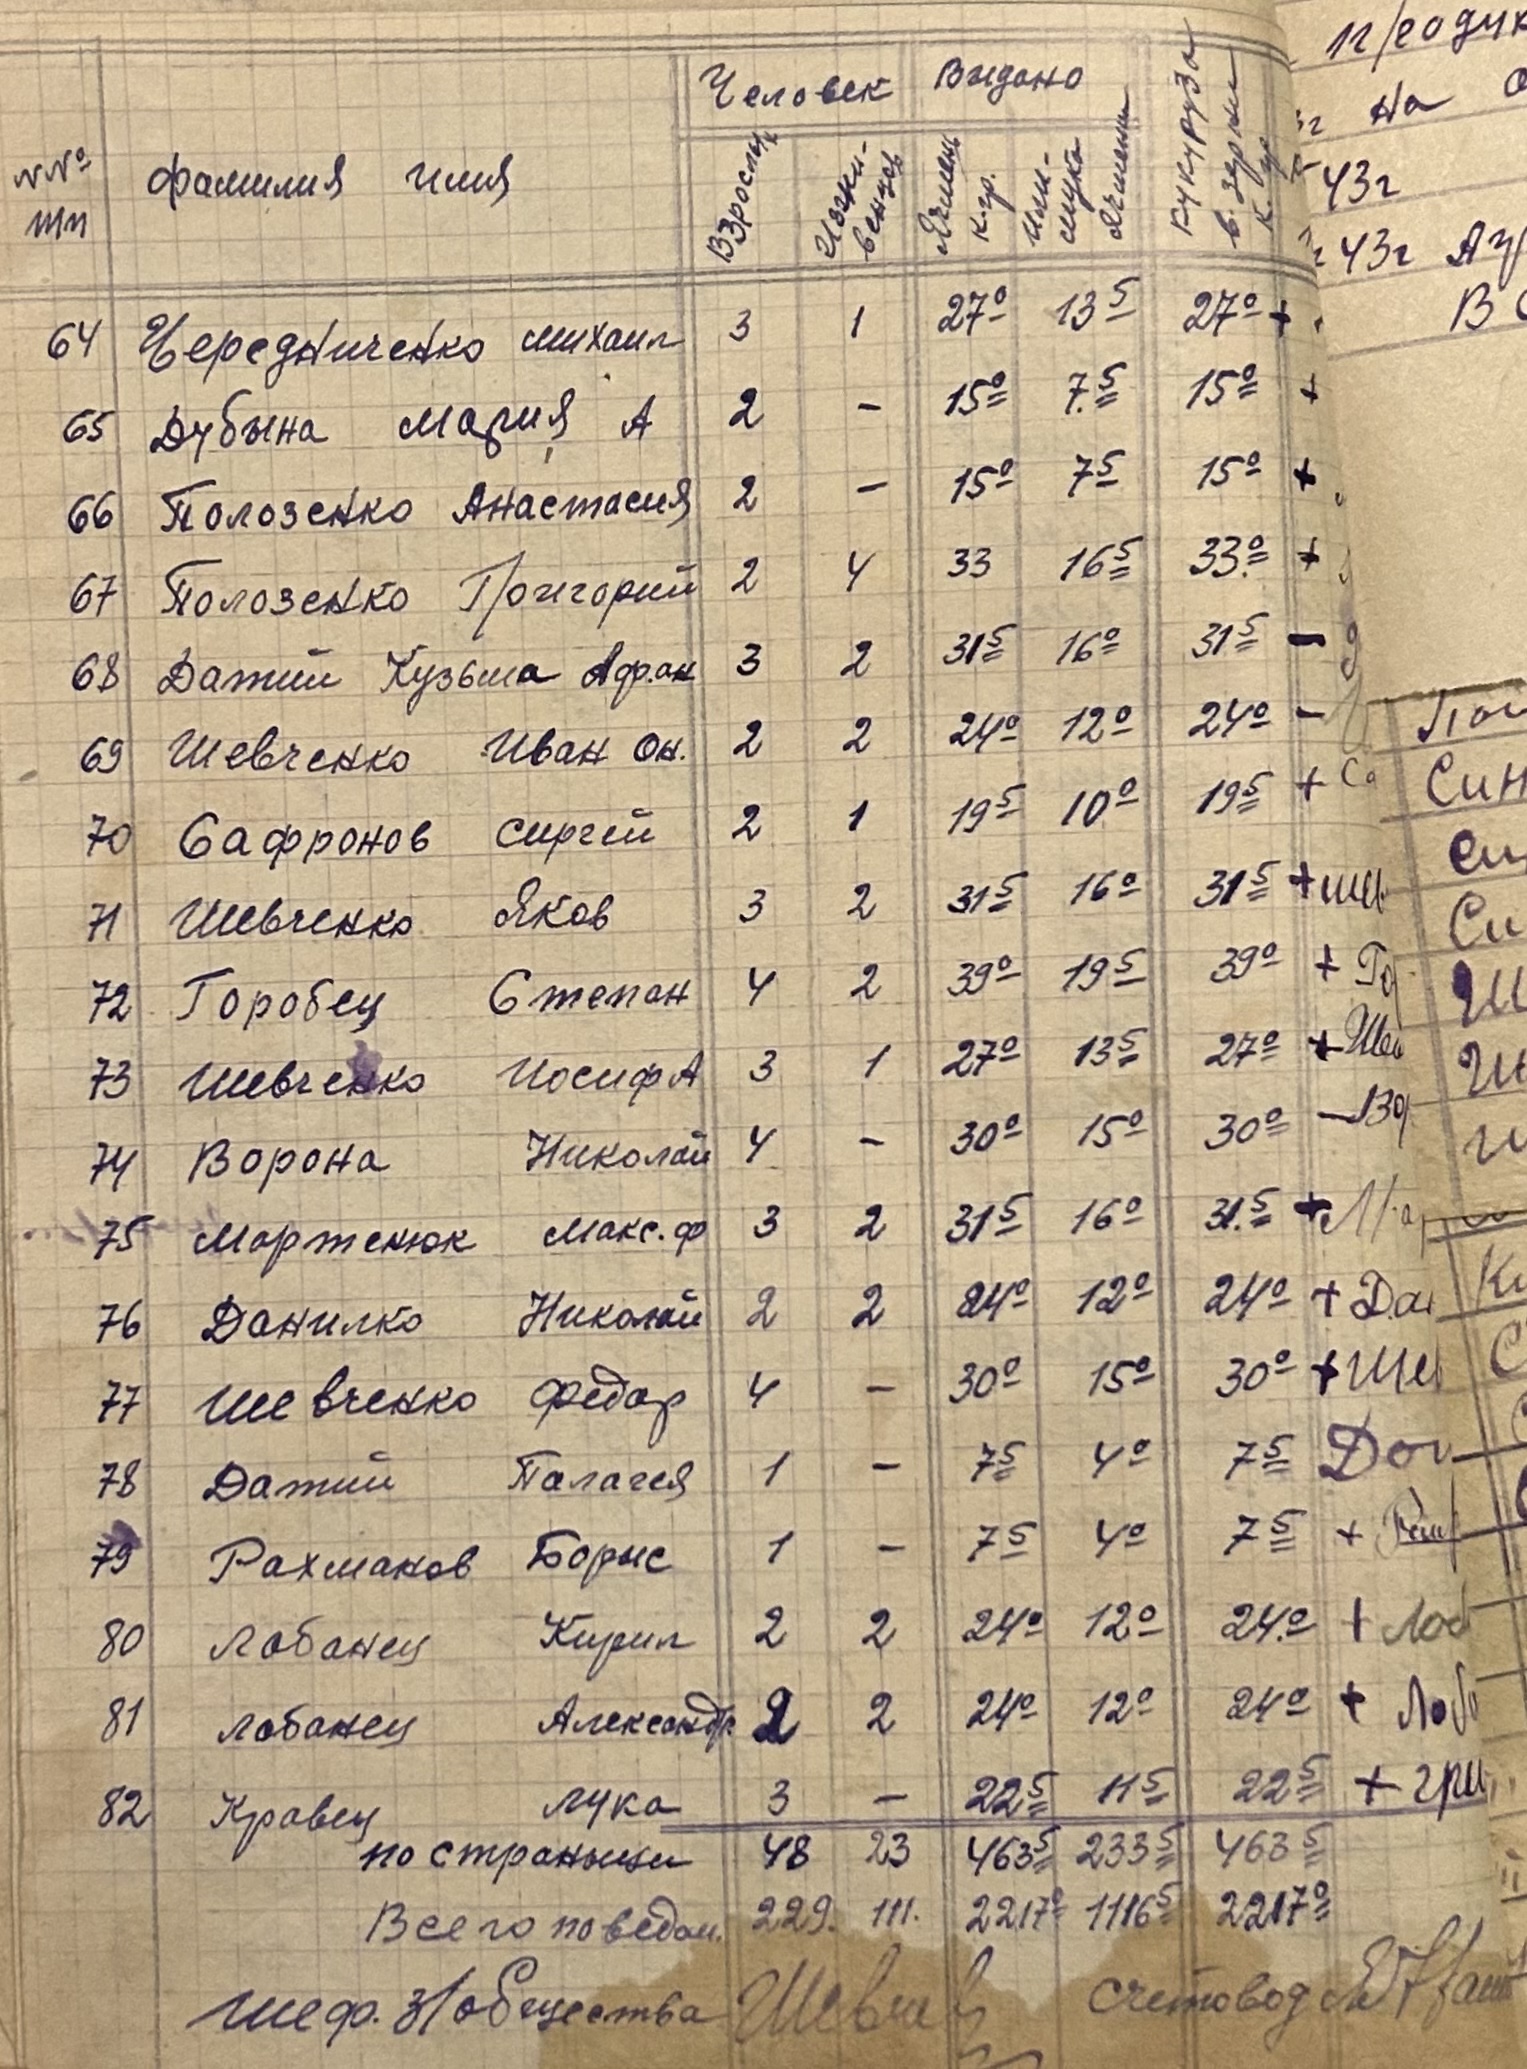 Человек Выдано
№№ пп фамилия имя Взрослых Ижди-венцев Ячмень к.гр. Или-мука Ячменна Кукуруза в. зерни к. гр
64 Чередниченко михаил 3 1 27º 13⁵ 27º +
65 Дубына Мария А 2 - 15º 7.⁵ 15º +
66 Полозенко Анастасия 2 - 15º 7⁵ 15º +
67 Полозенко Григорий 2 4 33 16⁵ 33.º +
68 Датий Кузьма Афан 3 2 31⁵ 16º 31⁵ -
69 Шевченко Иван Он. 2 2 24º 12º 24º -
70 Сафронов Сиргей 2 1 19⁵ 10º 19⁵ + Са
71 Шевченко Яков 3 2 31⁵ 16º 31⁵ + Ше
72 Горобец Степан 4 2 39º 19⁵ 39º + Го
73 Шевченко Иосиф А 3 1 27º 13⁵ 27º + Шев
74 Ворона Николай 4 - 30º 15º 30º -
75 Мартенюк Макс. ф 3 2 31⁵ 16º 31.⁵ +
76 Данилко Николай 2 2 24º 12º 24º + Дан
77 Шевченко Федор 4 - 30º 15º 30º + Шев
78 Датий Палагея 1 - 7⁵ 4º 7⁵
79 Рахманов Борис 1 - 7⁵ 4º 7⁵ +
80 Лобанец Кирил 2 2 24º 12º 24.º + Лоб
81 Лобанец Александр 2 2 24º 12º 24º + Лоб
82 Кравец Лука 3 - 22⁵ 11⁵ 22⁵ +
по странице 48 23 463⁵ 233⁵ 463⁵
Всего по ведом. 229. 111. 2217º 1116⁵ 2217º
шеф. З/общества Счетовод
43г
43г
на
Син